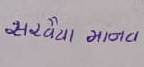 સરવૈયા માનવ